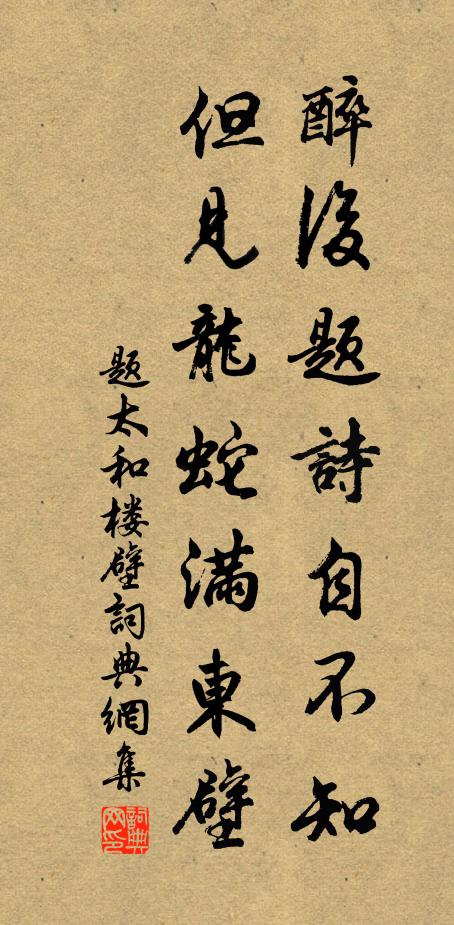 醉後题詩自不知
但见龍蛇滿東壁
题太和楼壁詞典網集
詞典网印